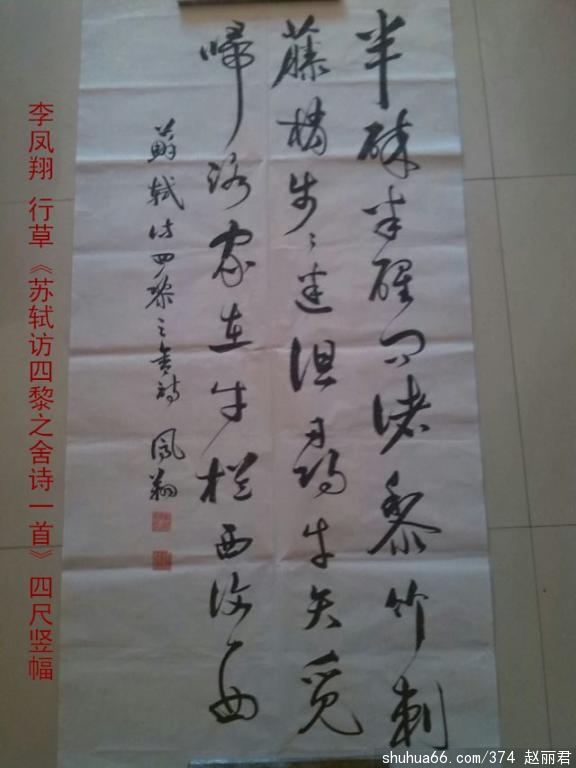 半醉半醒问诸黎竹刺
藤梢步〻迷但尋牛矢觅
歸路家在牛栏西復西
蘇軾访四黎之舍诗 凤翔
李凤翔 行草《苏轼访四黎之舍诗一首》四尺竖幅
shuhua66.com/374 赵丽君